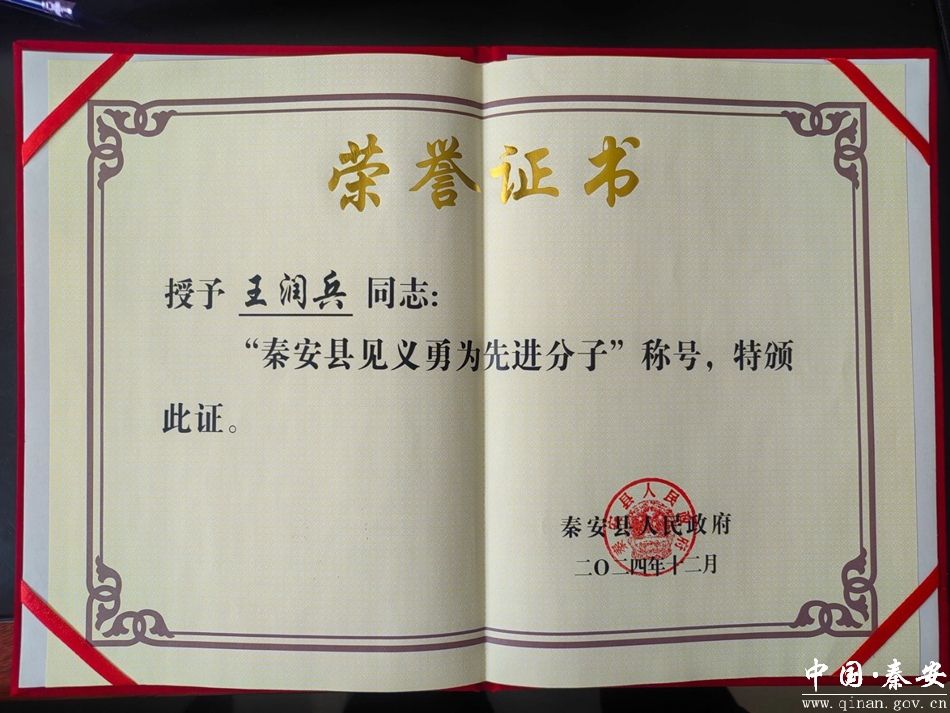 荣誉证书
授予 王润兵 同志：
“秦安县见义勇为先进分子”称号，特颁
此证。
秦安县人民政府
二〇二四年十二月
秦安县人民政府
中国·秦安
www.qinan.gov.cn